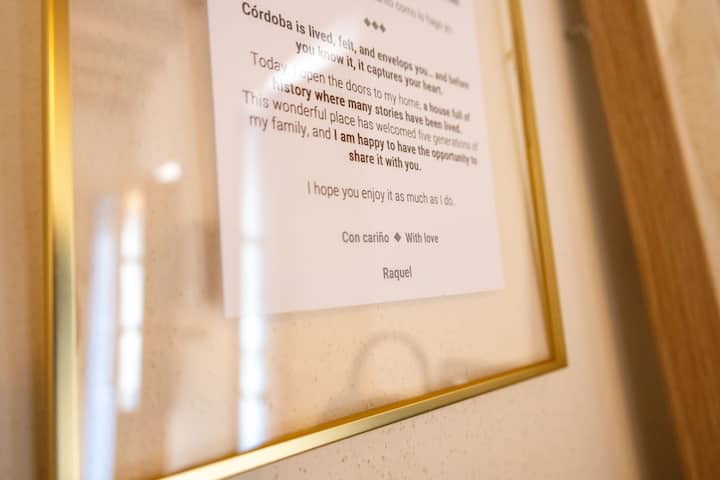 como lo hago yo
◆◆◆
Córdoba is lived, felt, and envelops you... and before
you know it, it captures your heart.
Today I open the doors to my home, a house full of
history where many stories have been lived.
This wonderful place has welcomed five generations of
my family, and I am happy to have the opportunity to
share it with you.
I hope you enjoy it as much as I do.
Con cariño ◆ With love
Raquel